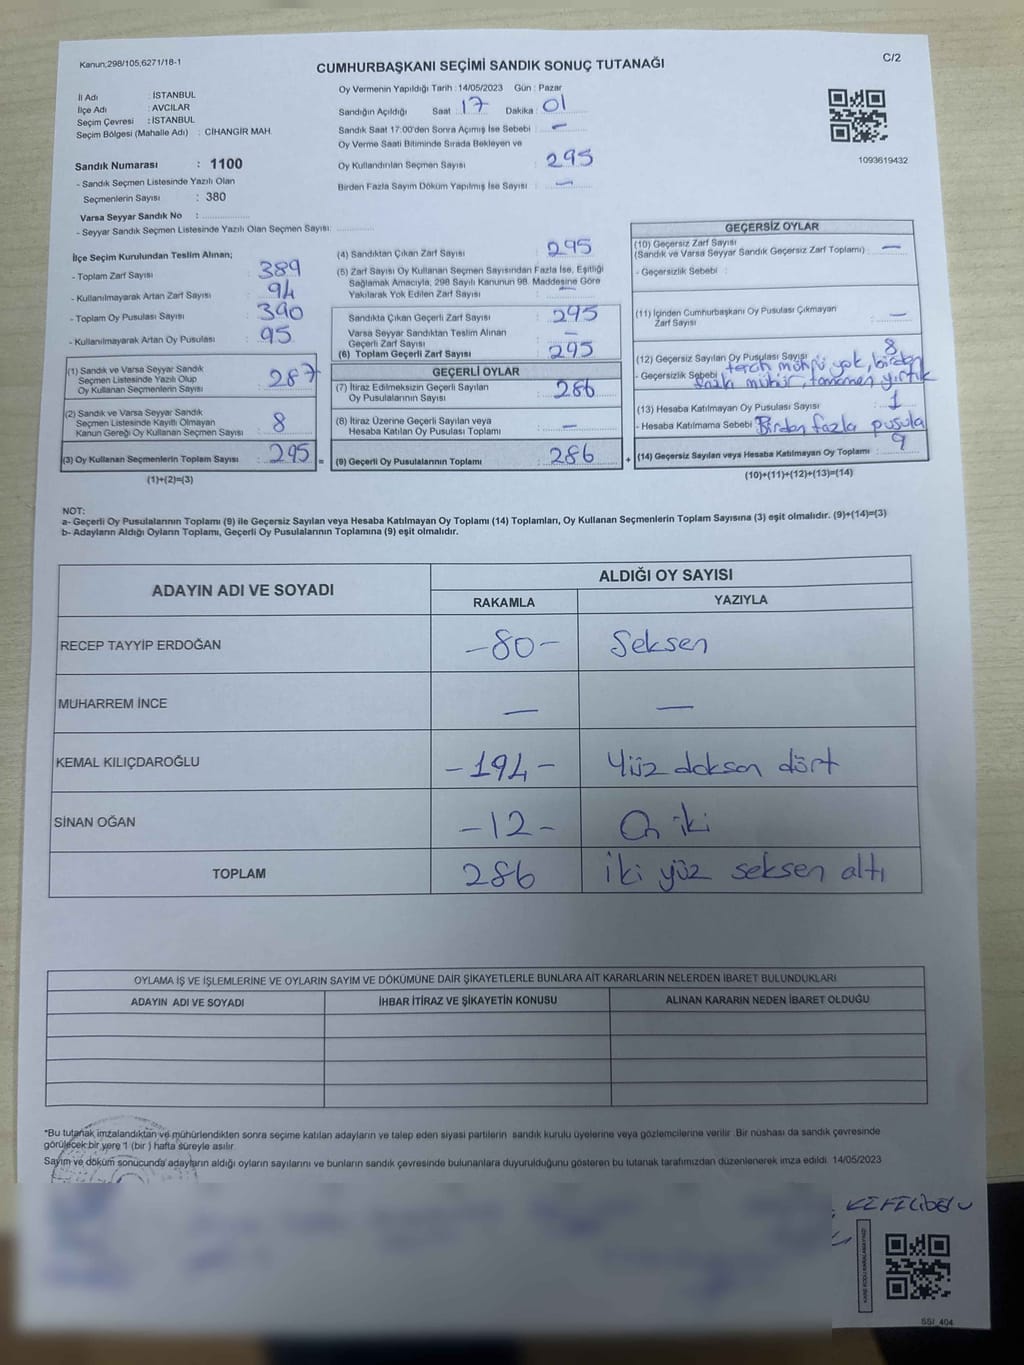 Kanun,298/105,6271/18-1
C/2
CUMHURBAŞKANI SEÇİMİ SANDIK SONUÇ TUTANAĞI
İl Adı : İSTANBUL
İlçe Adı : AVCILAR
Seçim Çevresi : İSTANBUL
Seçim Bölgesi (Mahalle Adı) : CİHANGİR MAH.
Sandık Numarası : 1100
- Sandık Seçmen Listesinde Yazılı Olan
Seçmenlerin Sayısı : 380
Varsa Seyyar Sandık No :
- Seyyar Sandık Seçmen Listesinde Yazılı Olan Seçmen Sayısı:
Oy Vermenin Yapıldığı Tarih : 14/05/2023 Gün : Pazar
Sandığın Açıldığı Saat 17 Dakika 01
Sandık Saat 17:00'den Sonra Açımış İse Sebebi : —
Oy Verme Saati Bitiminde Sırada Bekleyen ve
Oy Kullandırılan Seçmen Sayısı : 295
Birden Fazla Sayım Döküm Yapılmış İse Sayısı : —
1093619432
İlçe Seçim Kurulundan Teslim Alınan;
- Toplam Zarf Sayısı : 389
- Kullanılmayarak Artan Zarf Sayısı : 94
- Toplam Oy Pusulası Sayısı : 390
- Kullanılmayarak Artan Oy Pusulası : 95
(1) Sandık ve Varsa Seyyar Sandık
Seçmen Listesinde Yazılı Olup
Oy Kullanan Seçmenlerin Sayısı : 287
(2) Sandık ve Varsa Seyyar Sandık
Seçmen Listesinde Kayıtlı Olmayan
Kanun Gereği Oy Kullanan Seçmen Sayısı : 8
(3) Oy Kullanan Seçmenlerin Toplam Sayısı : 295
(1)+(2)=(3)
(4) Sandıktan Çıkan Zarf Sayısı : 295
(5) Zarf Sayısı Oy Kullanan Seçmen Sayısından Fazla İse, Eşitliği
Sağlamak Amacıyla, 298 Sayılı Kanunun 98. Maddesine Göre
Yakılarak Yok Edilen Zarf Sayısı : —
Sandıkta Çıkan Geçerli Zarf Sayısı : 295
Varsa Seyyar Sandıktan Teslim Alınan
Geçerli Zarf Sayısı : —
(6) Toplam Geçerli Zarf Sayısı : 295
GEÇERLİ OYLAR
(7) İtiraz Edilmeksizin Geçerli Sayılan
Oy Pusulalarının Sayısı : 286
(8) İtiraz Üzerine Geçerli Sayılan veya
Hesaba Katılan Oy Pusulası Toplamı : —
= (9) Geçerli Oy Pusulalarının Toplamı : 286 +
GEÇERSİZ OYLAR
(10) Geçersiz Zarf Sayısı
(Sandık ve Varsa Seyyar Sandık Geçersiz Zarf Toplamı) : —
- Geçersizlik Sebebi :
(11) İçinden Cumhurbaşkanı Oy Pusulası Çıkmayan
Zarf Sayısı : —
(12) Geçersiz Sayılan Oy Pusulası Sayısı : 8
- Geçersizlik Sebebi tercih mührü yok, birden
fazla mühür, tamamen yırtık
(13) Hesaba Katılmayan Oy Pusulası Sayısı : 1
- Hesaba Katılmama Sebebi Birden fazla pusula
(14) Geçersiz Sayılan veya Hesaba Katılmayan Oy Toplamı : 9
(10)+(11)+(12)+(13)=(14)
NOT:
a- Geçerli Oy Pusulalarının Toplamı (9) ile Geçersiz Sayılan veya Hesaba Katılmayan Oy Toplamı (14) Toplamları, Oy Kullanan Seçmenlerin Toplam Sayısına (3) eşit olmalıdır. (9)+(14)=(3)
b- Adayların Aldığı Oyların Toplamı, Geçerli Oy Pusulalarının Toplamına (9) eşit olmalıdır.
ADAYIN ADI VE SOYADI
ALDIĞI OY SAYISI
RAKAMLA YAZIYLA
RECEP TAYYİP ERDOĞAN -80- Seksen
MUHARREM İNCE — —
KEMAL KILIÇDAROĞLU -194- Yüz doksan dört
SİNAN OĞAN -12- On iki
TOPLAM 286 iki yüz seksen altı
OYLAMA İŞ VE İŞLEMLERİNE VE OYLARIN SAYIM VE DÖKÜMÜNE DAİR ŞİKAYETLERLE BUNLARA AİT KARARLARIN NELERDEN İBARET BULUNDUKLARI
ADAYIN ADI VE SOYADI İHBAR İTİRAZ VE ŞİKAYETİN KONUSU ALINAN KARARIN NEDEN İBARET OLDUĞU
*Bu tutanak imzalandıktan ve mühürlendikten sonra seçime katılan adayların ve talep eden siyasi partilerin sandık kurulu üyelerine veya gözlemcilerine verilir. Bir nüshası da sandık çevresinde
görülecek bir yere 1 (bir ) hafta süreyle asılır.
Sayım ve döküm sonucunda adayların aldığı oyların sayılarını ve bunların sandık çevresinde bulunanlara duyurulduğunu gösteren bu tutanak tarafımızdan düzenlenerek imza edildi. 14/05/2023
KARE KODU KARALAMAYINIZ!
SSI_404